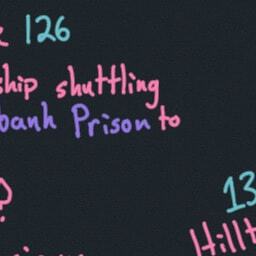 126
ship shuttling
bank Prison to
?
13
Hillt